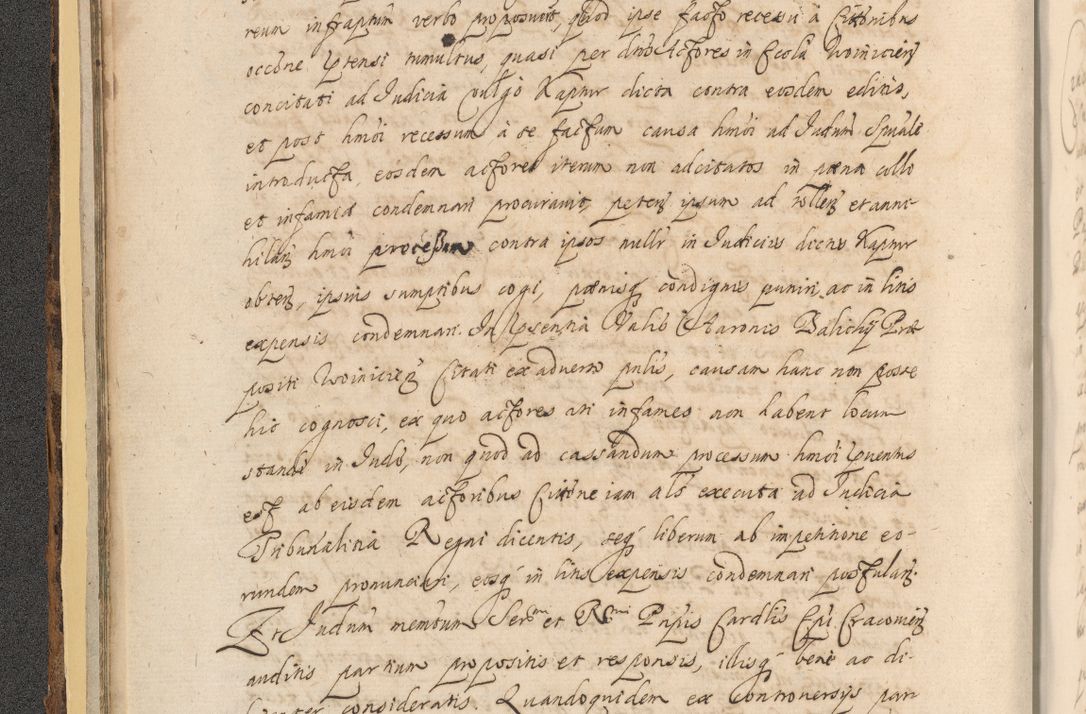 reum infraptum verbo proposuerit, quod ipse facto recessu à Citõnibus
occõne ptensi tumultus, quasi per dnos Actores in Eccla Woiniciens
concitati ad Judicia vulgo Kaptur dicta contra eosdem editis,
et post hmõi recessum à se factum causa hmõi ad Judum Spuale
introducta, eosdem actores iterum non adcitatos in pœna collo
et infamiæ condemnari procuravit, petens ipsum ad tollens et anni-
hilans hmõi processum contra ipsos nullr in Judiciis dictis Kaptur
obtens, ipsius sumptibus cogi, pœnisq condignis puniri, ac in litis
expensis condemnari. In psentia Nalis Aaronis Balichy Præ-
positi Woiniciens Citati ex adverso pnlis, causam hanc non posse
hic cognosci, ex quo actores uti infames non habent locum
standi in Judo, non quod ad cassandum processum hmõi pventus
est ab eisdem actoribus Citõne iam als executa ad Judicia
Tribunalitia Regni dicentis, seq liberum ab impetitione eo-
rundem pronunciari, eosq in litis expensis condemnari postulans.
Et Judum memtum Sermi et Rmi Pnpis Cardlis Epi Cracoviens
auditis partium propositis et responsis, illisq bene ac di-
ligenter consideratis. Quandoquidem ex Controversiis par